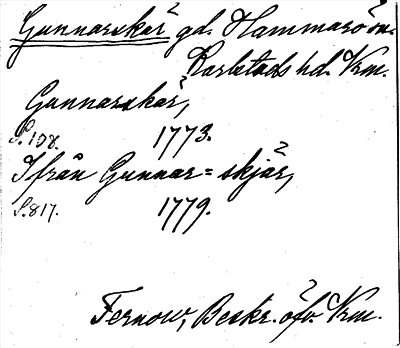 Gunnarskär gd. Hammarö sn.
Karlstads hd. Vrm.
Gunnarskär,
S. 108. 1773.
Ifrån Gunnar= skjär,
S. 817. 1779.
Fernow, Beskr. öfv. Vrm.